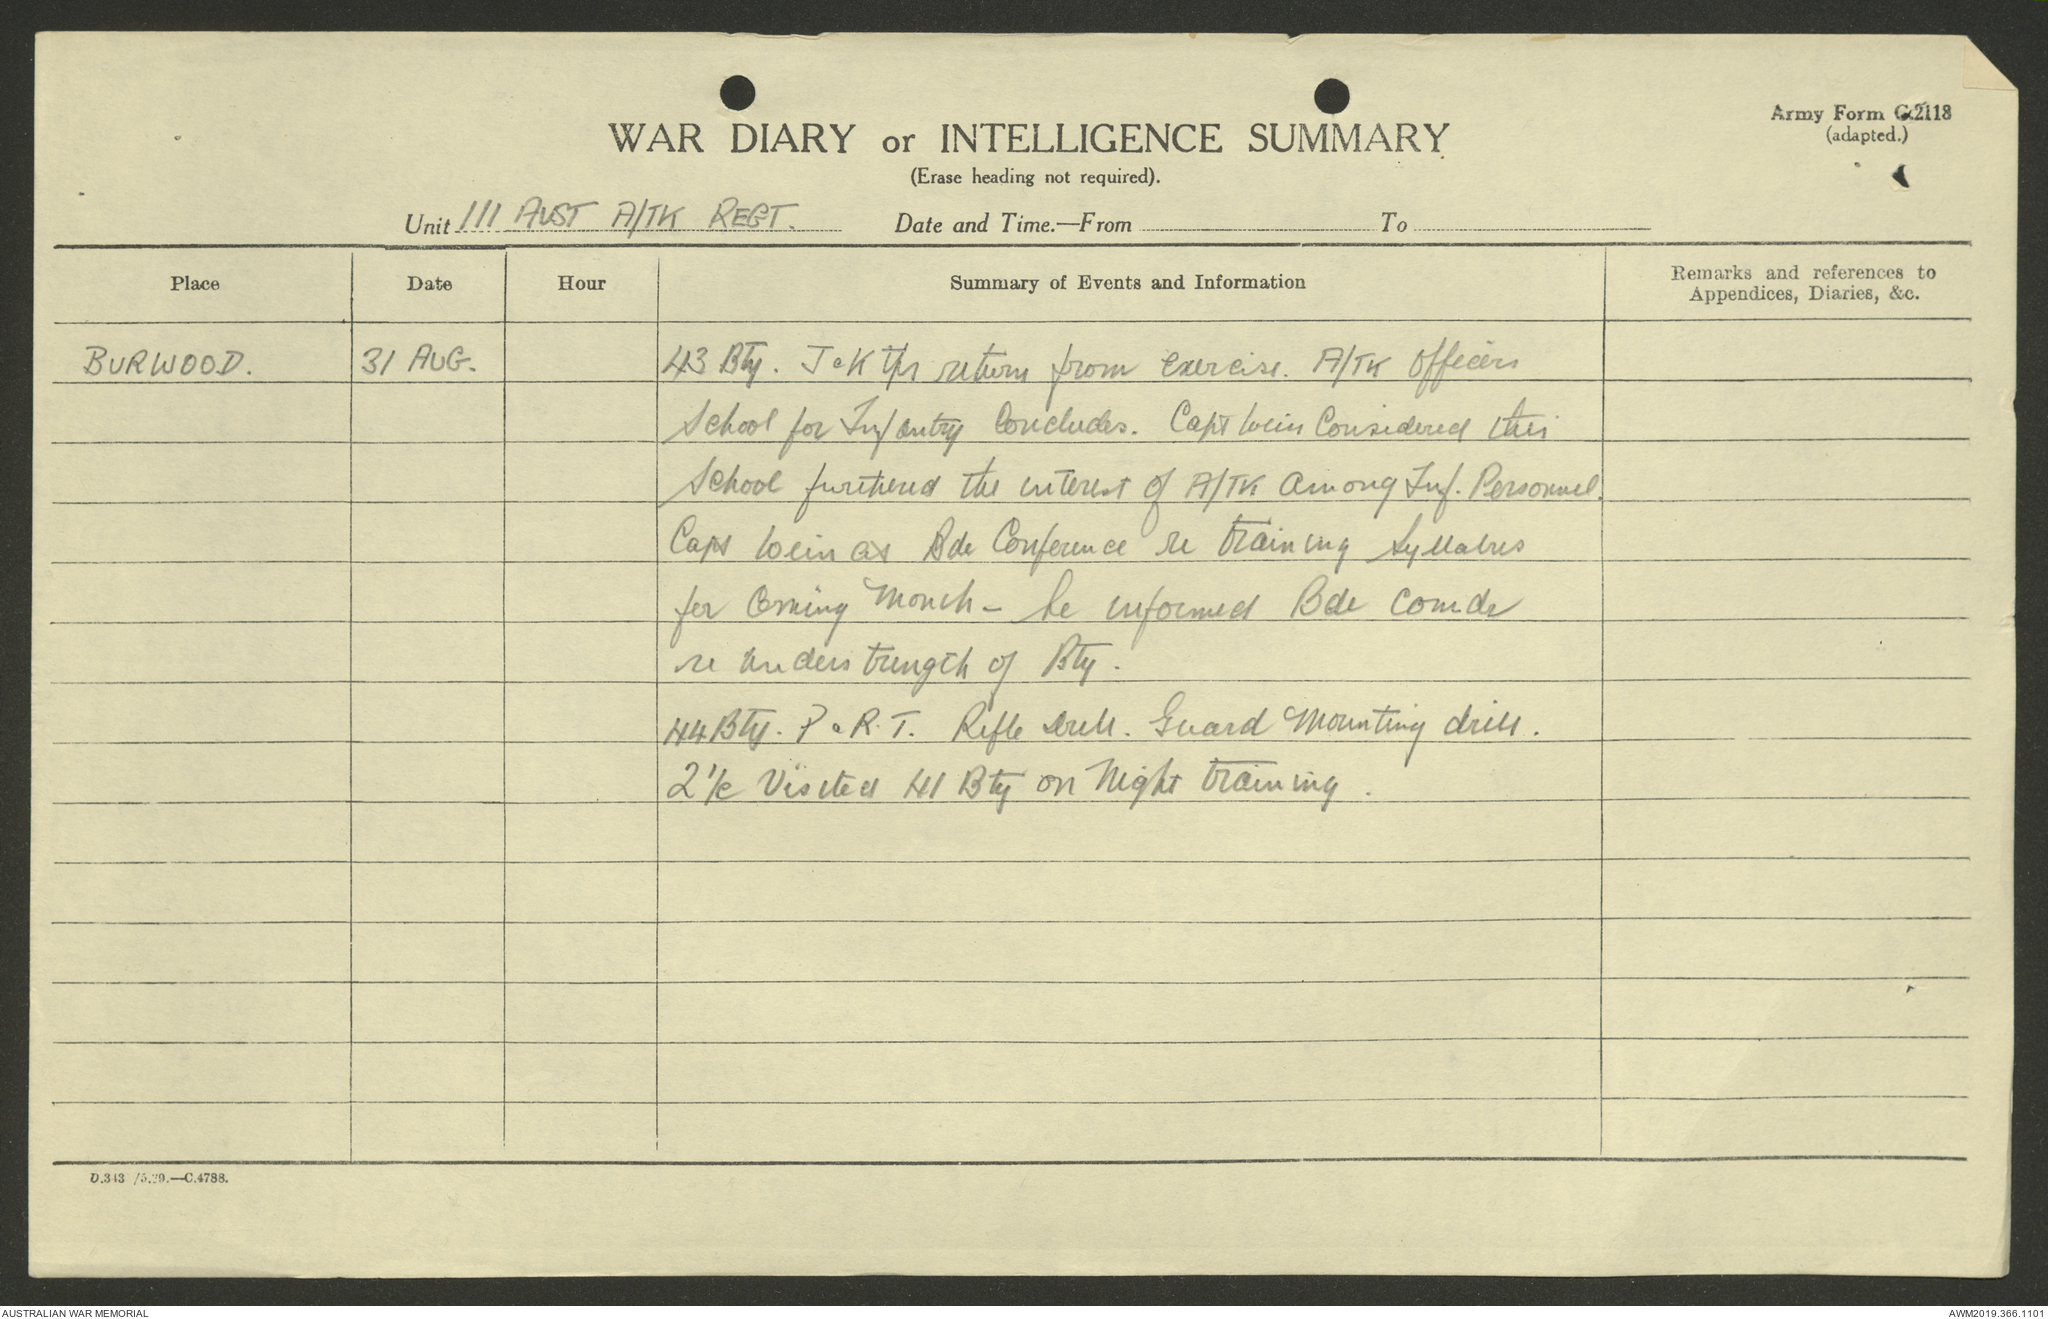 Army Form C.2118
(adapted.)
WAR DIARY or INTELLIGENCE SUMMARY
(Erase heading not required).
Unit 111 AUST A/TK REGT. Date and Time.—From To
Place Date Hour Summary of Events and Information Remarks and references to
Appendices, Diaries, &c.
BURWOOD. 31 AUG. 43 Bty. J & K tps return from exercise. A/TK Officers
School for Infantry Concludes. Capt Considered this
School furthered the interest of A/TK among Inf. Personnel.
Capt at Bde Conference re training Syllabus
for Coming Month – he informed Bde comdr
re understrength of Bty.
44 Bty. P & R.T. Rifle Drill. Guard Mounting drill.
2 I/C Visited 41 Bty on Night training.
D.343 /5.39.—C.4788.
AUSTRALIAN WAR MEMORIAL
AWM2019.366.1101